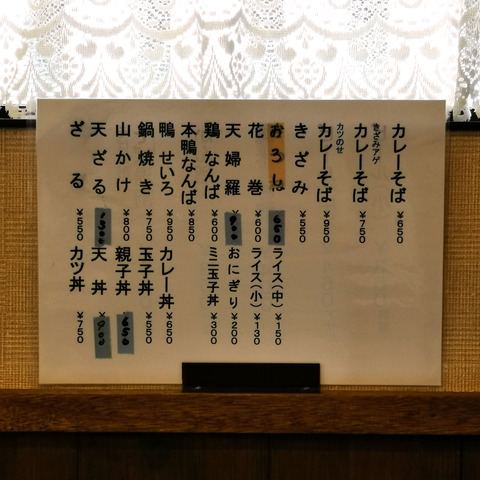 カレーそば ¥650
きざみアゲ
カレーそば ¥750
カツのせ
カレーそば ¥950
きざみ ¥550
おろし 650
花巻 ¥600
天婦羅 900
鶏なんば ¥600
本鴨なんば ¥850
鴨せいろ ¥950
鍋焼き ¥750
山かけ ¥800
天ざる 1300
ざる ¥550
ライス(中) ¥150
ライス(小) ¥130
おにぎり ¥200
ミニ玉子丼 ¥300
カレー丼 ¥650
玉子丼 ¥550
親子丼 650
天丼 900
カツ丼 ¥750